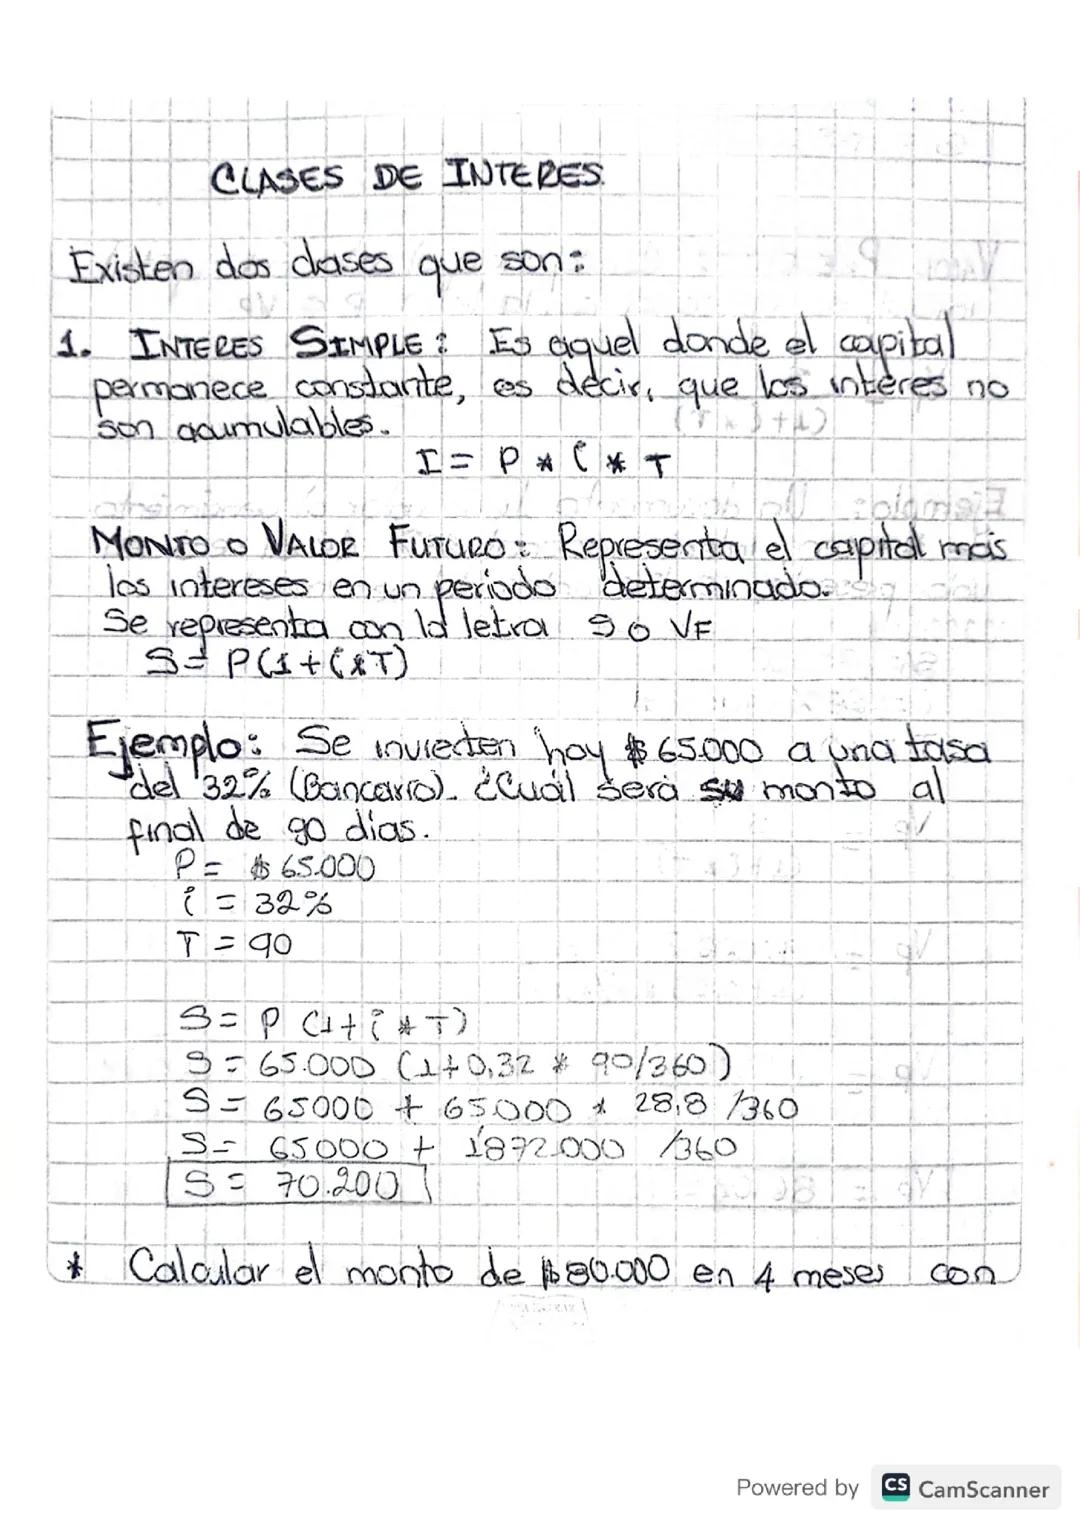 CLASES DE INTERES
Existen dos clases que son:
1. INTERES SIMPLE: Es aquel donde el capital
permanece constante, es decir, que los interes no
son acumulables.
I = P * i * T
MONTO O VALOR FUTURO: Representa el capital mas
los intereses en un periodo determinado.
Se representa con la letra S o VF
S = P(1+i*T)
Ejemplo: Se invierten hoy $65.000 a una tasa
del 32% (Bancario). ¿Cuál será su monto al
final de 90 dias.
P = $65.000
i = 32%
T = 90
S = P (1+i*T)
S = 65.000 (1+0,32 * 90/360)
S = 65000 + 65.000 * 28,8 /360
S = 65000 + 1'872.000 /360
S = 70.200
* Calcular el monto de $80.000 en 4 meses con
Powered by CS CamScanner